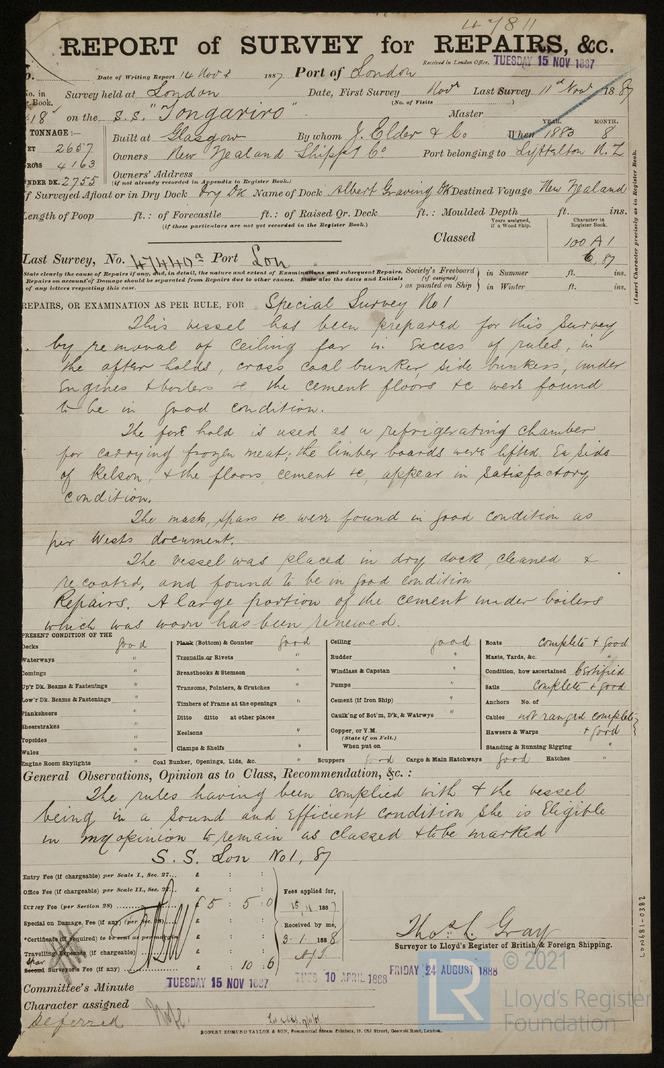 47811
REPORT of SURVEY for REPAIRS, &c.
Date of Writing Report 14 Nov 1887 Port of London
Received in London Office, TUESDAY 15 NOV 1887
No. in Reg. Book. Survey held at London Date, First Survey Nov Last Survey 11th Nov 1887
(No. of Visits
18 on the S.S. "Tongariro" Master
TONNAGE:—
Built at Glasgow By whom J. Elder & Co When 1883 8
YEAR. MONTH.
NET 2657
GROSS 4163
UNDER DK. 2755
Owners New Zealand Shippg Co Port belonging to Lyttelton N.Z
Owners' Address
(if not already recorded in Appendix to Register Book.)
If Surveyed Afloat or in Dry Dock Dry Dk Name of Dock Albert Graving Dk Destined Voyage New Zealand
Length of Poop ft.: of Forecastle ft.: of Raised Qr. Deck ft.: Moulded Depth ft. ins.
(if these particulars are not yet recorded in the Register Book.)
Years assigned, if a Wood Ship. Character in Register Book.
Classed 100 A1
6.87
(Insert Character precisely as in Register Book.
Last Survey, No. 47440a Port Lon
State clearly the cause of Repairs if any, and, in detail, the nature and extent of Examinations and subsequent Repairs.
Repairs on account of Damage should be separated from Repairs due to other causes. State also the dates and Initials
of any letters respecting this case.
Society's Freeboard (if assigned) as painted on Ship
in Summer ft. ins.
in Winter ft. ins.
REPAIRS, OR EXAMINATION AS PER RULE, FOR Special Survey No 1
This vessel has been prepared for this Survey
by removal of ceiling far in Excess of rules, in
the after holds, cross coal bunker side bunkers, under
Engines & boilers &c the cement floors &c were found
to be in good condition.
The fore hold is used as a refrigerating chamber
for carrying frozen meat; the limber boards were lifted Ea side
of Kelson, & the floors, cement &c, appear in Satisfactory
condition.
The masts, spars &c were found in good condition as
per Wests document.
The vessel was placed in dry dock, cleaned &
recoated, and found to be in good condition
Repairs. A large portion of the cement under boilers
which was worn has been renewed.
PRESENT CONDITION OF THE
Decks good
Waterways "
Comings "
Up'r Dk. Beams & Fastenings "
Low'r Dk. Beams & Fastenings "
Planksheers "
Sheerstrakes "
Topsides "
Wales "
Engine Room Skylights "
Plank (Bottom) & Counter good
Treenails or Rivets "
Breasthooks & Stemson "
Transoms, Pointers, & Crutches "
Timbers of Frame at the openings "
Ditto ditto at other places "
Keelsons "
Clamps & Shelfs "
Coal Bunker, Openings, Lids, &c. "
Ceiling good
Rudder "
Windlass & Capstan "
Pumps "
Cement (if Iron Ship) "
Caulk'ng of Bot'm, D'k, & Watrwys "
Copper, or Y.M.
(State if on Felt.)
When put on
Scuppers good Cargo & Main Hatchways good Hatches "
Boats complete & good
Masts, Yards, &c. "
Condition, how ascertained Certified
Sails complete & good
Anchors No. of
Cables not ranged complete
Hawsers & Warps & good
Standing & Running Rigging "
General Observations, Opinion as to Class, Recommendation, &c.:
The rules having been complied with & the vessel
being in a Sound and Efficient condition She is Eligible
in my opinion to remain as classed & to be marked
S. S. Lon No 1, 87
Entry Fee (if chargeable) per Scale I., Sec. 27... £ : :
Office Fee (if chargeable) per Scale II., Sec. 27... £ : :
Survey Fee (per Section 28) £ 5 : 5 : 0
Special on Damage, Fee (if any) (per Sec. 28) £ : :
*Certificate (if required) to be sent as per margin
Travelling Expenses (if chargeable)
Second Surveyor's Fee (if any) £ : 10 : 6
Fees applied for,
15.11.1887
Received by me,
3.1.1888
Thos. L. Gray
Surveyor to Lloyd's Register of British & Foreign Shipping.
Committee's Minute TUESDAY 15 NOV 1887 TUES 10 APRIL 1888 FRIDAY 24 AUGUST 1888
Character assigned
Deferred
ROBERT EDMUND TAYLOR & SON, Commercial Steam Printers, 19, Old Street, Goswell Road, London.
LON681-0382
© 2021
LR
Lloyd's Register
Foundation